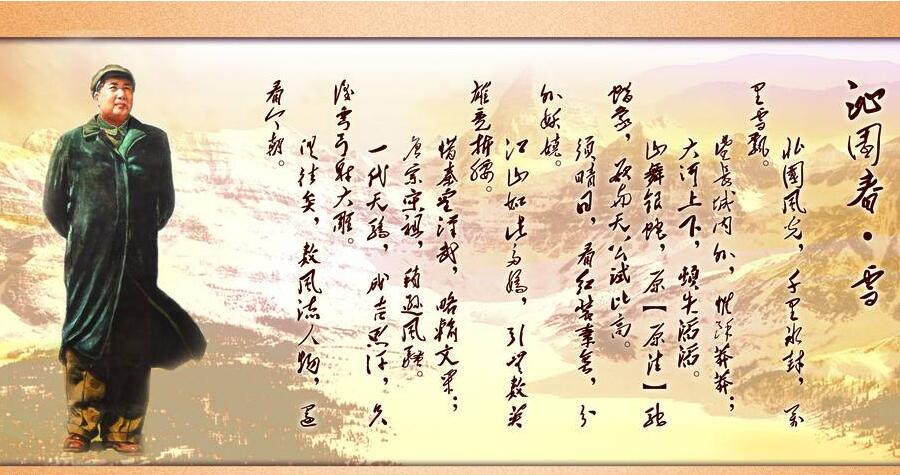 沁园春·雪
北国风光，千里冰封，万
里雪飘。
望长城内外，惟余莽莽；
大河上下，顿失滔滔。
山舞银蛇，原【原注】驰
蜡象，欲与天公试比高。
须晴日，看红装素裹，分
外妖娆。
江山如此多娇，引无数英
雄竞折腰。
惜秦皇汉武，略输文采；
唐宗宋祖，稍逊风骚。
一代天骄，成吉思汗，只
识弯弓射大雕。
俱往矣，数风流人物，还
看今朝。